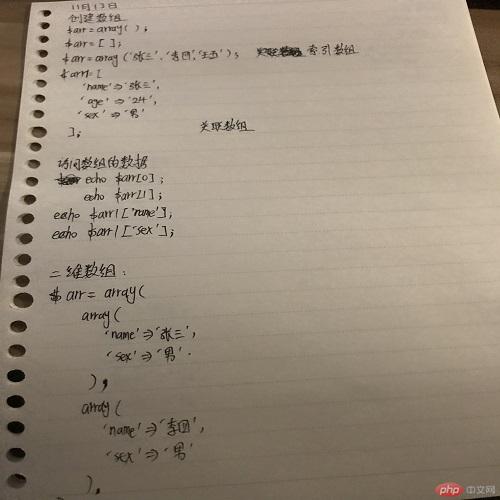 11月13日
创建数组
$arr=array( );
$arr=[ ];
$arr=array('张三','李四','王五'); 索引数组
$arr1=[
'name'=>'张三',
'age'=>'24',
'sex'=>'男'
]; 关联数组
访问数组的数据
echo $arr[0];
echo $arr[1];
echo $arr1['name'];
echo $arr1['sex'];
二维数组:
$arr= array(
array(
'name'=>'张三',
'sex'=>'男'.
),
array(
'name'=>'李四',
'sex'=>'男'
),
php 中文网